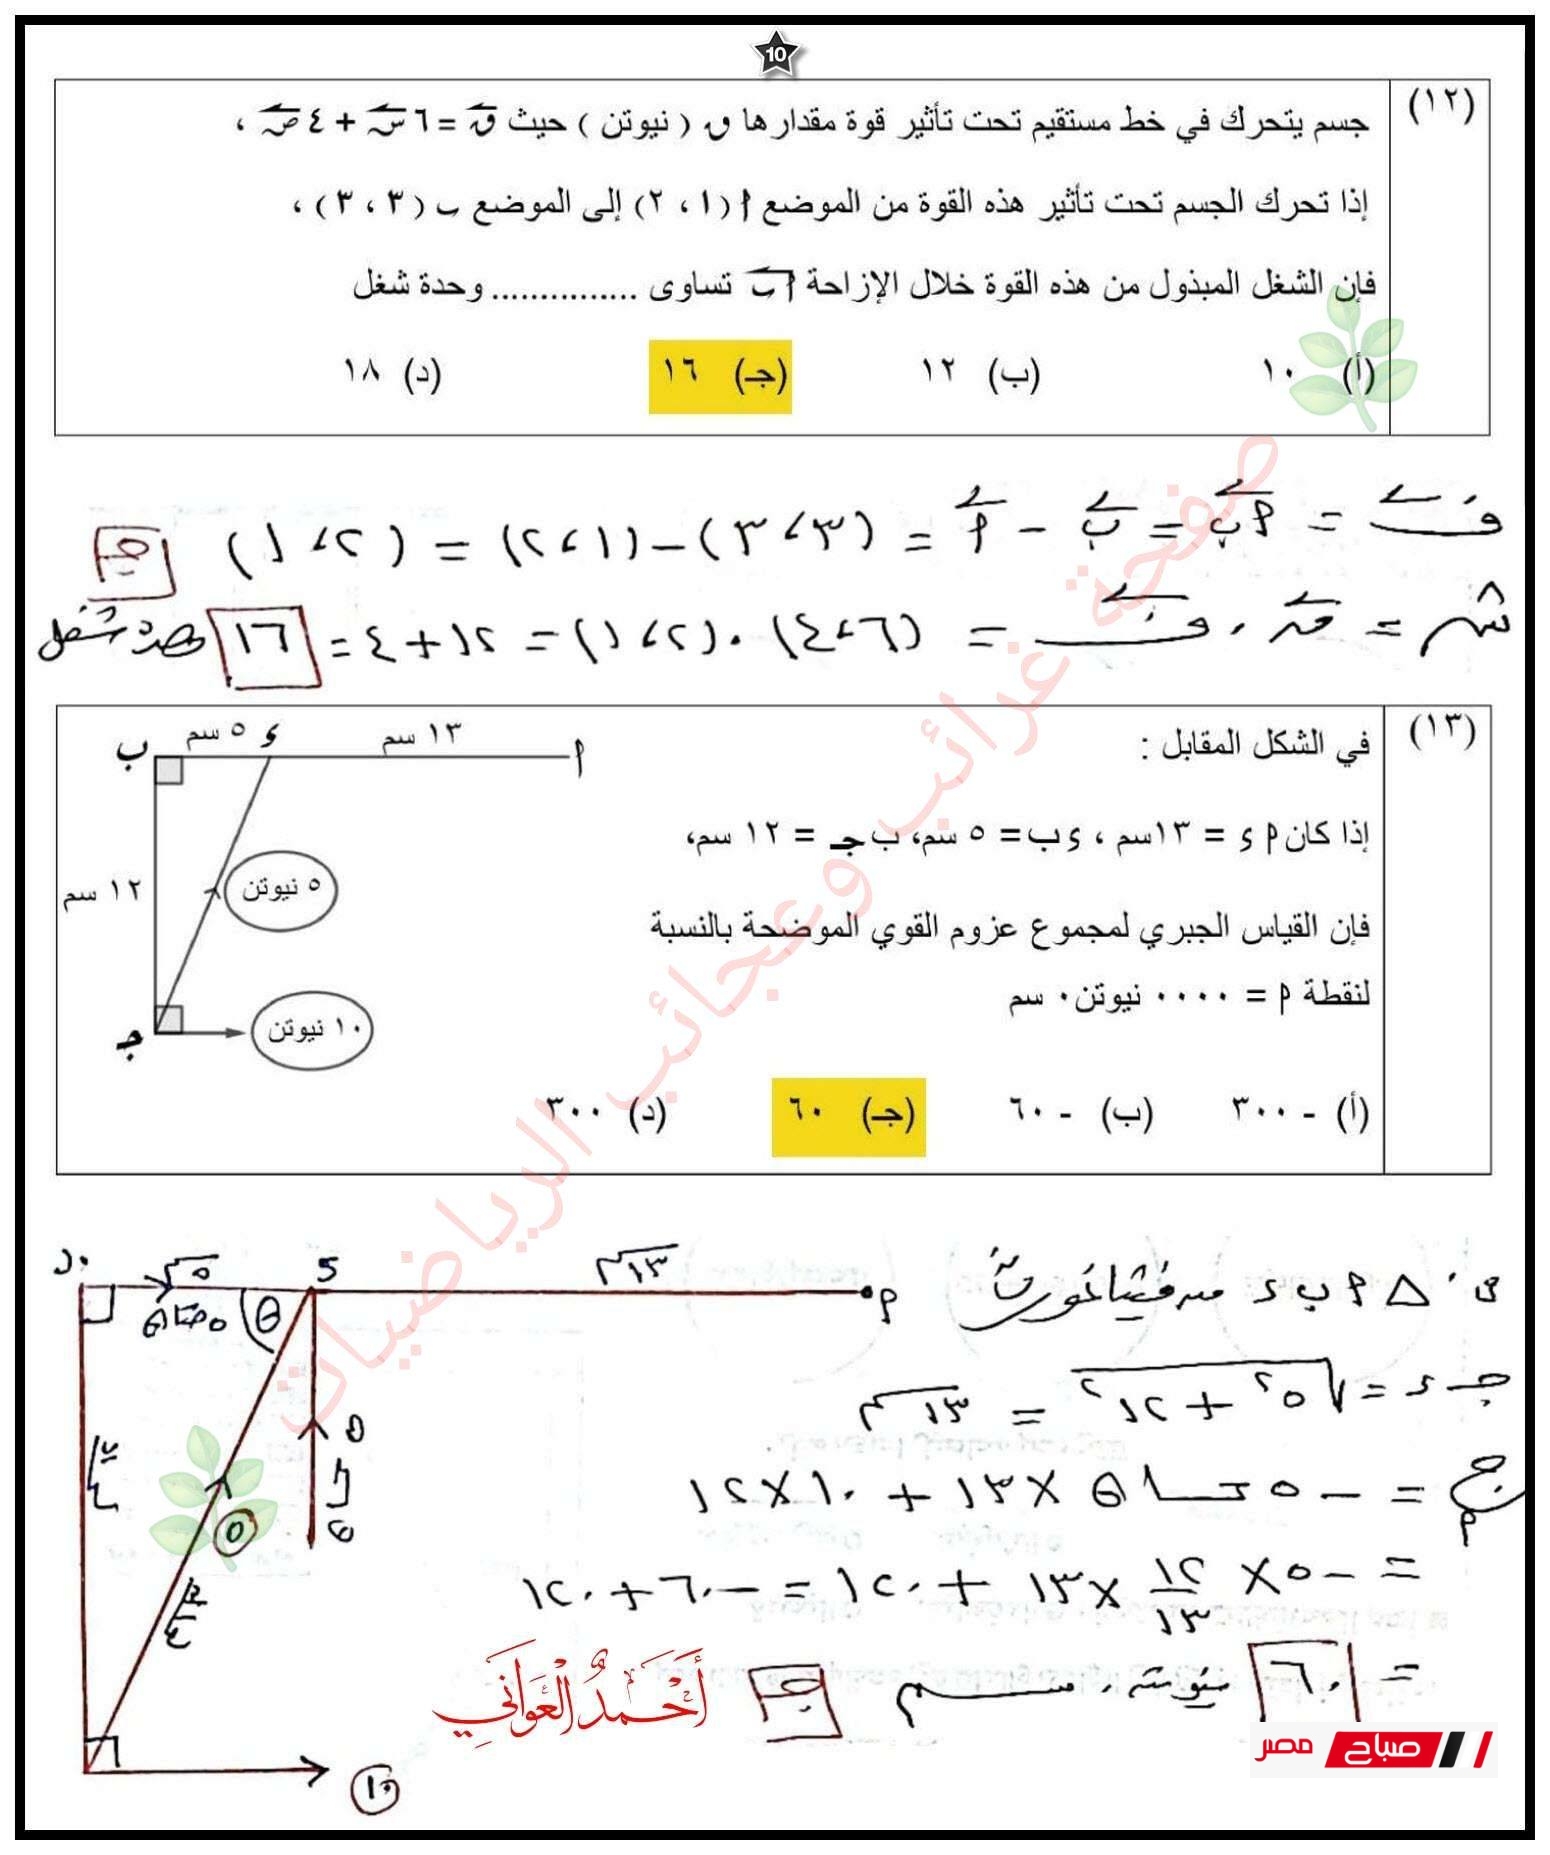 10
(١٢)
جسم يتحرك في خط مستقيم تحت تأثير قوة مقدارها ق ( نيوتن ) حيث ق = ٦ س + ٤ ص ،
إذا تحرك الجسم تحت تأثير هذه القوة من الموضع أ (١ ، ٢) إلى الموضع ب (٣ ، ٣) ،
فإن الشغل المبذول من هذه القوة خلال الإزاحة أب تساوى ............... وحدة شغل
(أ) ١٠ (ب) ١٢ (جـ) ١٦ (د) ١٨
ف = أب = ب - أ = (٣،٣) - (٢،١) = (١،٢) جـ
ش = ق . ف = (٤،٦) . (١،٢) = ١٢ + ٤ = ١٦ وحدة شغل
(١٣)
في الشكل المقابل :
إذا كان أ ء = ١٣سم ، ء ب = ٥ سم، ب جـ = ١٢ سم،
فإن القياس الجبري لمجموع عزوم القوي الموضحة بالنسبة
لنقطة أ = ٠٠٠٠ نيوتن٠ سم
(أ) - ٣٠٠ (ب) - ٦٠ (جـ) ٦٠ (د) ٣٠٠
ب ٥ سم ء ١٣ سم أ
١٢ سم
٥ نيوتن
١٠ نيوتن
جـ
∵ Δ أ ب ء من فيثاغورث
جـ ء = √٥² + ١٢² = ١٣ سم
جـ أ = - ٥ حا θ × ١٣ + ١٠ × ١٢
= - ٥ × ١٢/١٣ × ١٣ + ١٢٠ = - ٦٠ + ١٢٠
= ٦٠ نيوتن . سم جـ
ب ٥ سم ء ١٣ سم أ
٥ حتا θ θ
٥ حا θ
١٢ سم
٥
١٣ سم
١٠
أَحْمَدُ الْعَوَّانِي
صفحة غرائب وعجائب الرياضيات
صباح مصر